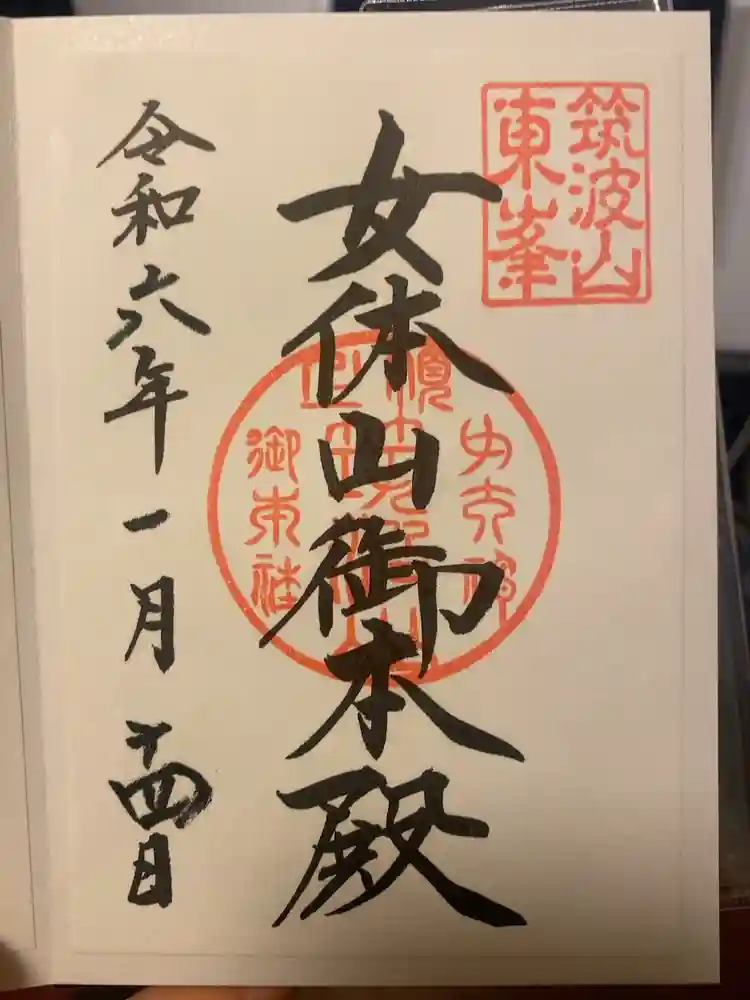 筑波山
東峯
女体山御本殿
御本社
令和六年一月十四日